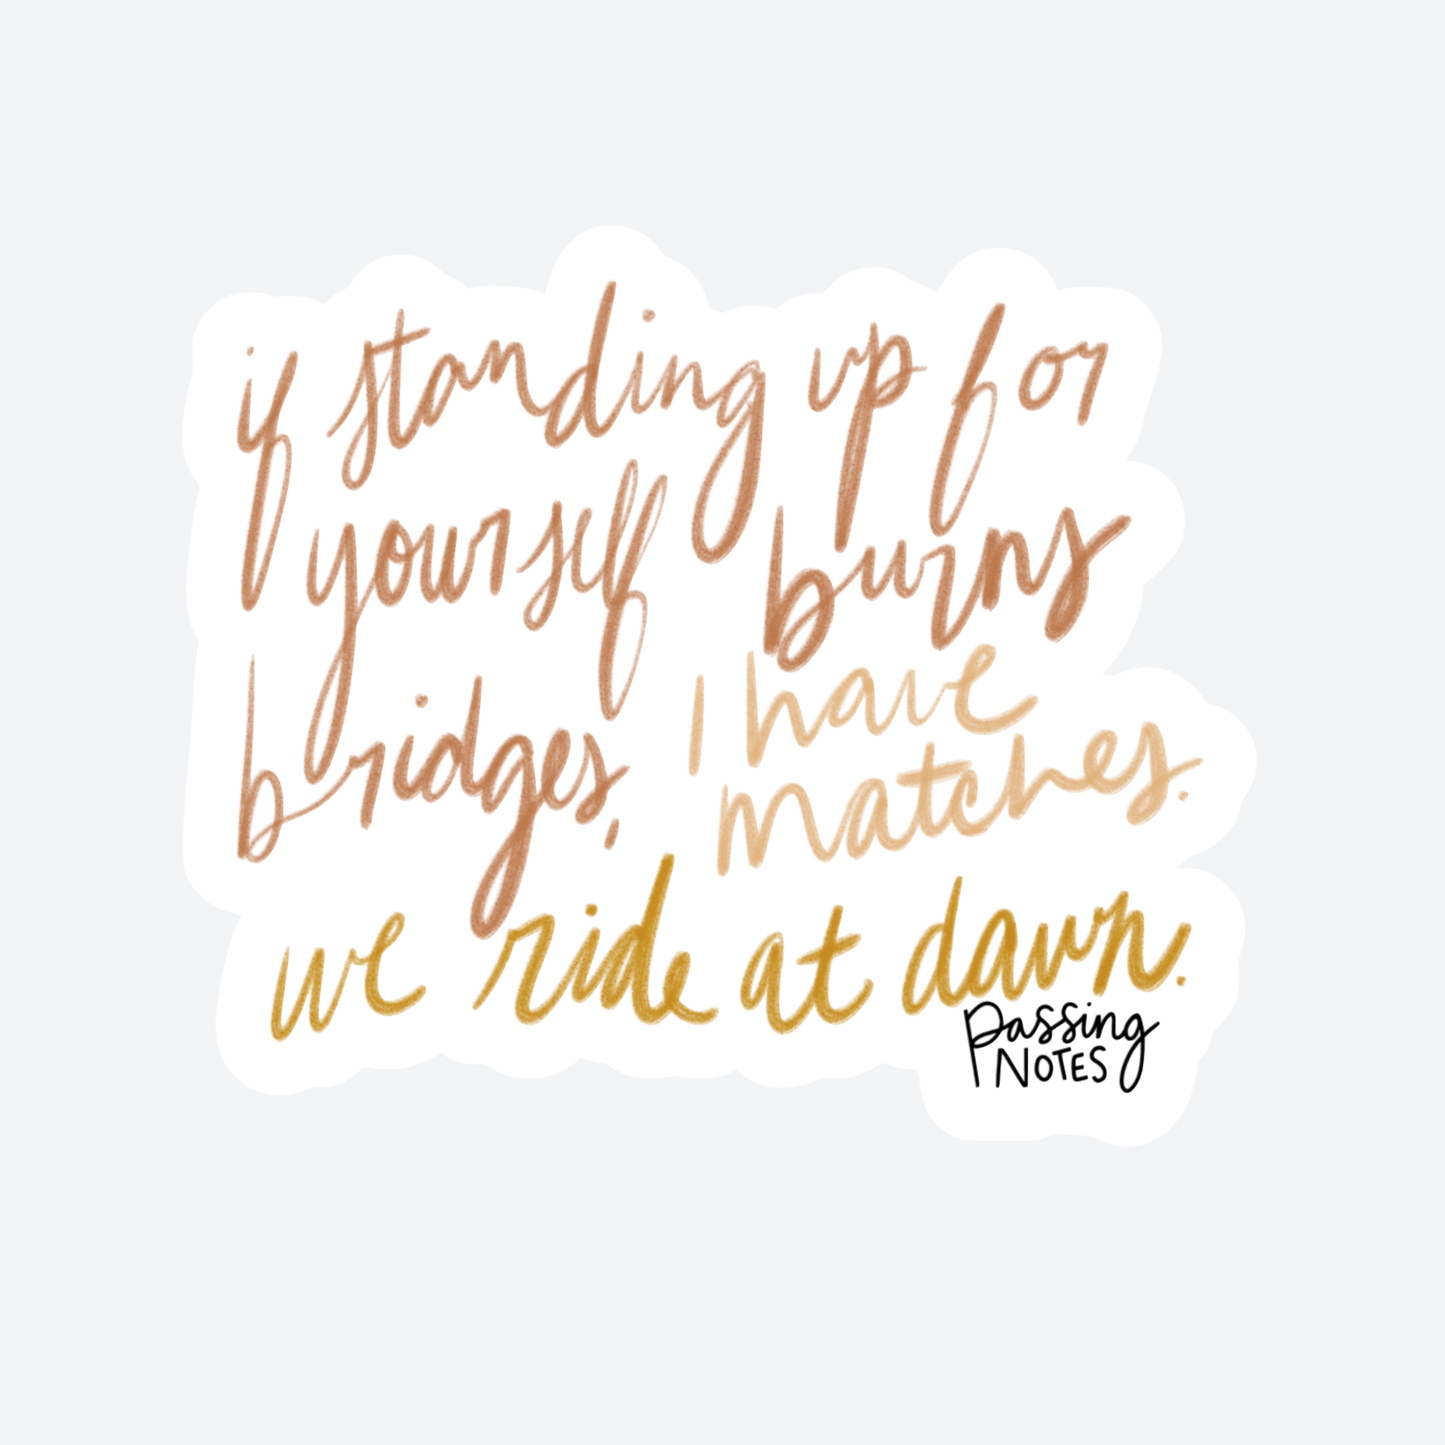 if standing up for
yourself burns
bridges, I have
matches.
we ride at dawn.
Passing
NOTES